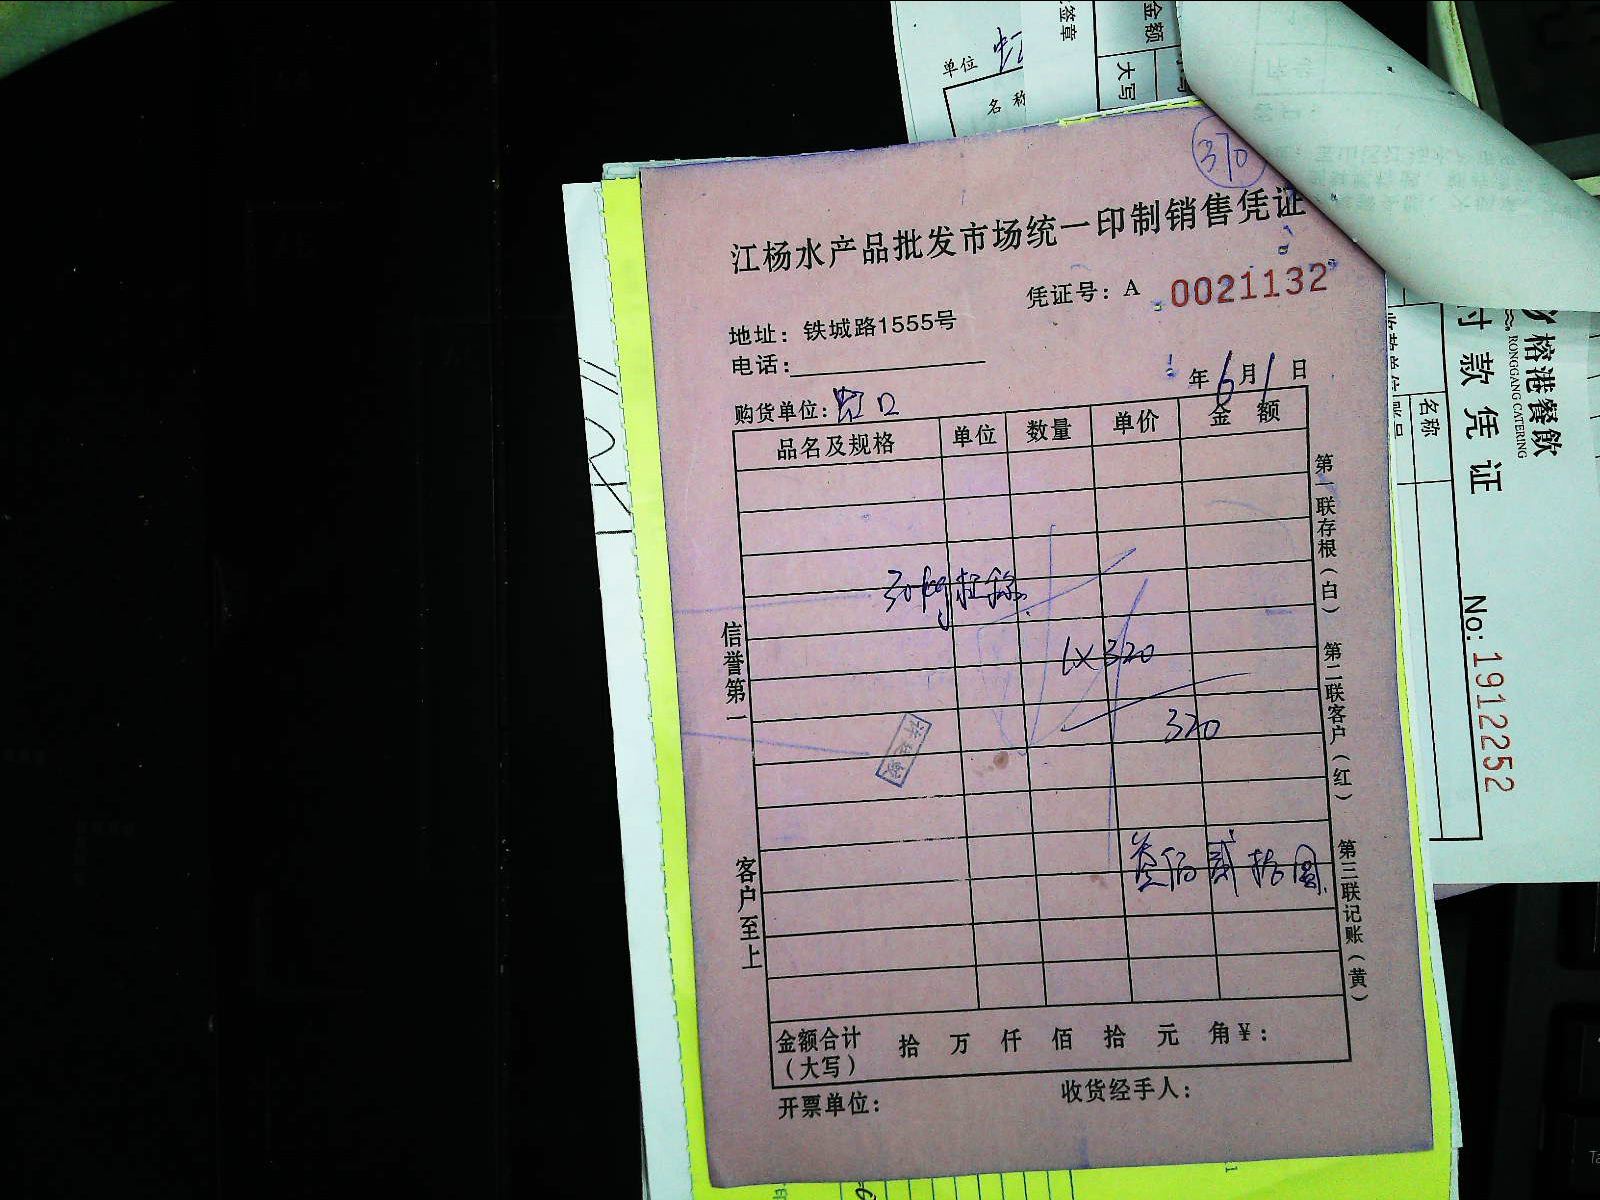 单位 虹
名称
签章
金额
大写
370
江杨水产品批发市场统一印制销售凭证
凭证号：A 0021132
地址：铁城路1555号
电话：
年6月1日
购货单位：虹口
品名及规格 单位 数量 单价 金额
30kg 杠称
1×320
320
叁佰贰拾圆
信誉第一
客户至上
第一联存根（白）
第二联客户（红）
第三联记账（黄）
金额合计 拾 万 仟 佰 拾 元 角 ￥：
（大写）
开票单位：
收货经手人：
榕港餐飲
RONGGANG CATERING
付款凭证
No: 1912252
名称